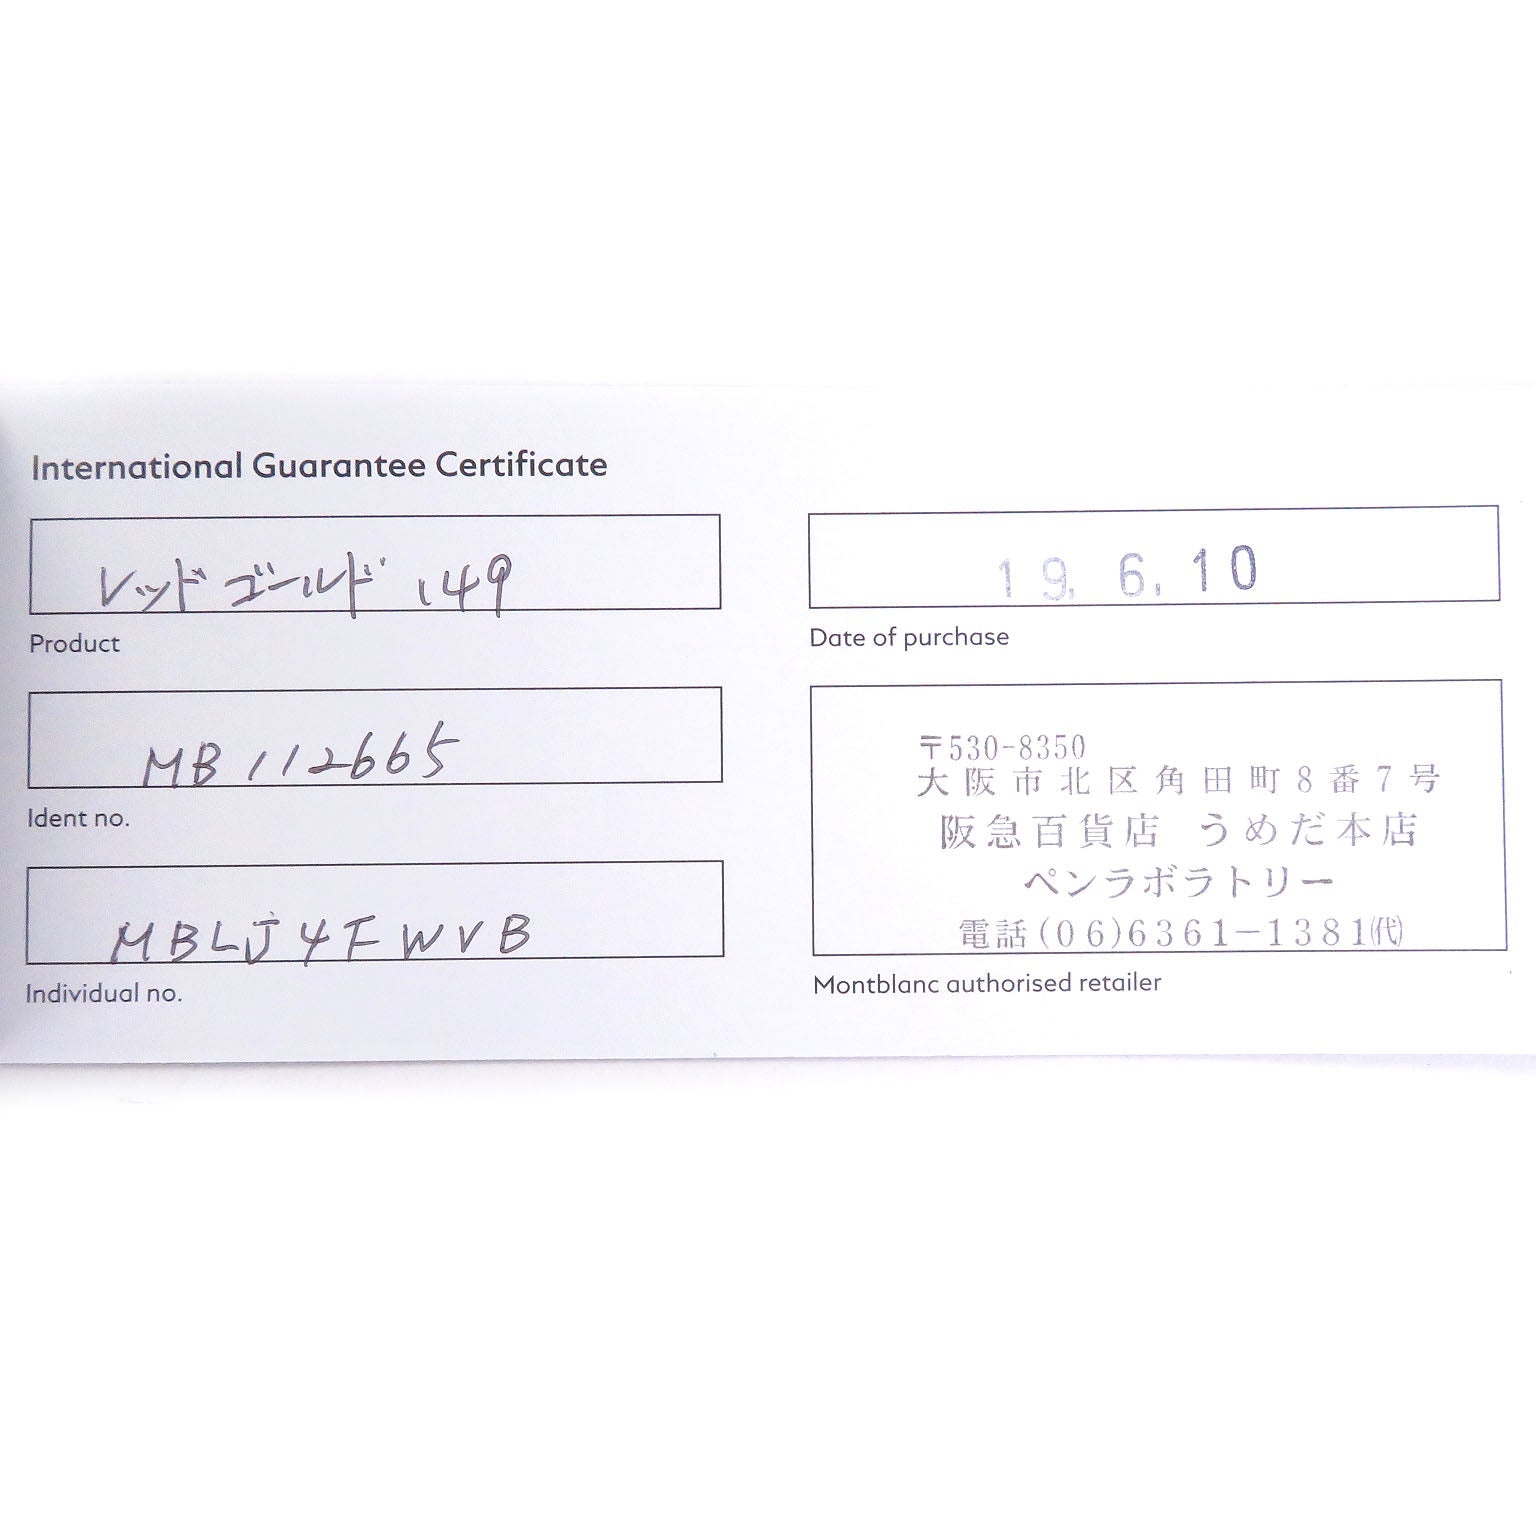 International Guarantee Certificate
レッドゴールド 149
Product
MB 112665
Ident no.
MBLJ4FWVB
Individual no.
19.6.10
Date of purchase
〒530-8350
大阪市北区角田町8番7号
阪急百貨店 うめだ本店
ペンラボラトリー
電話(06)6361-1381㈹
Montblanc authorised retailer